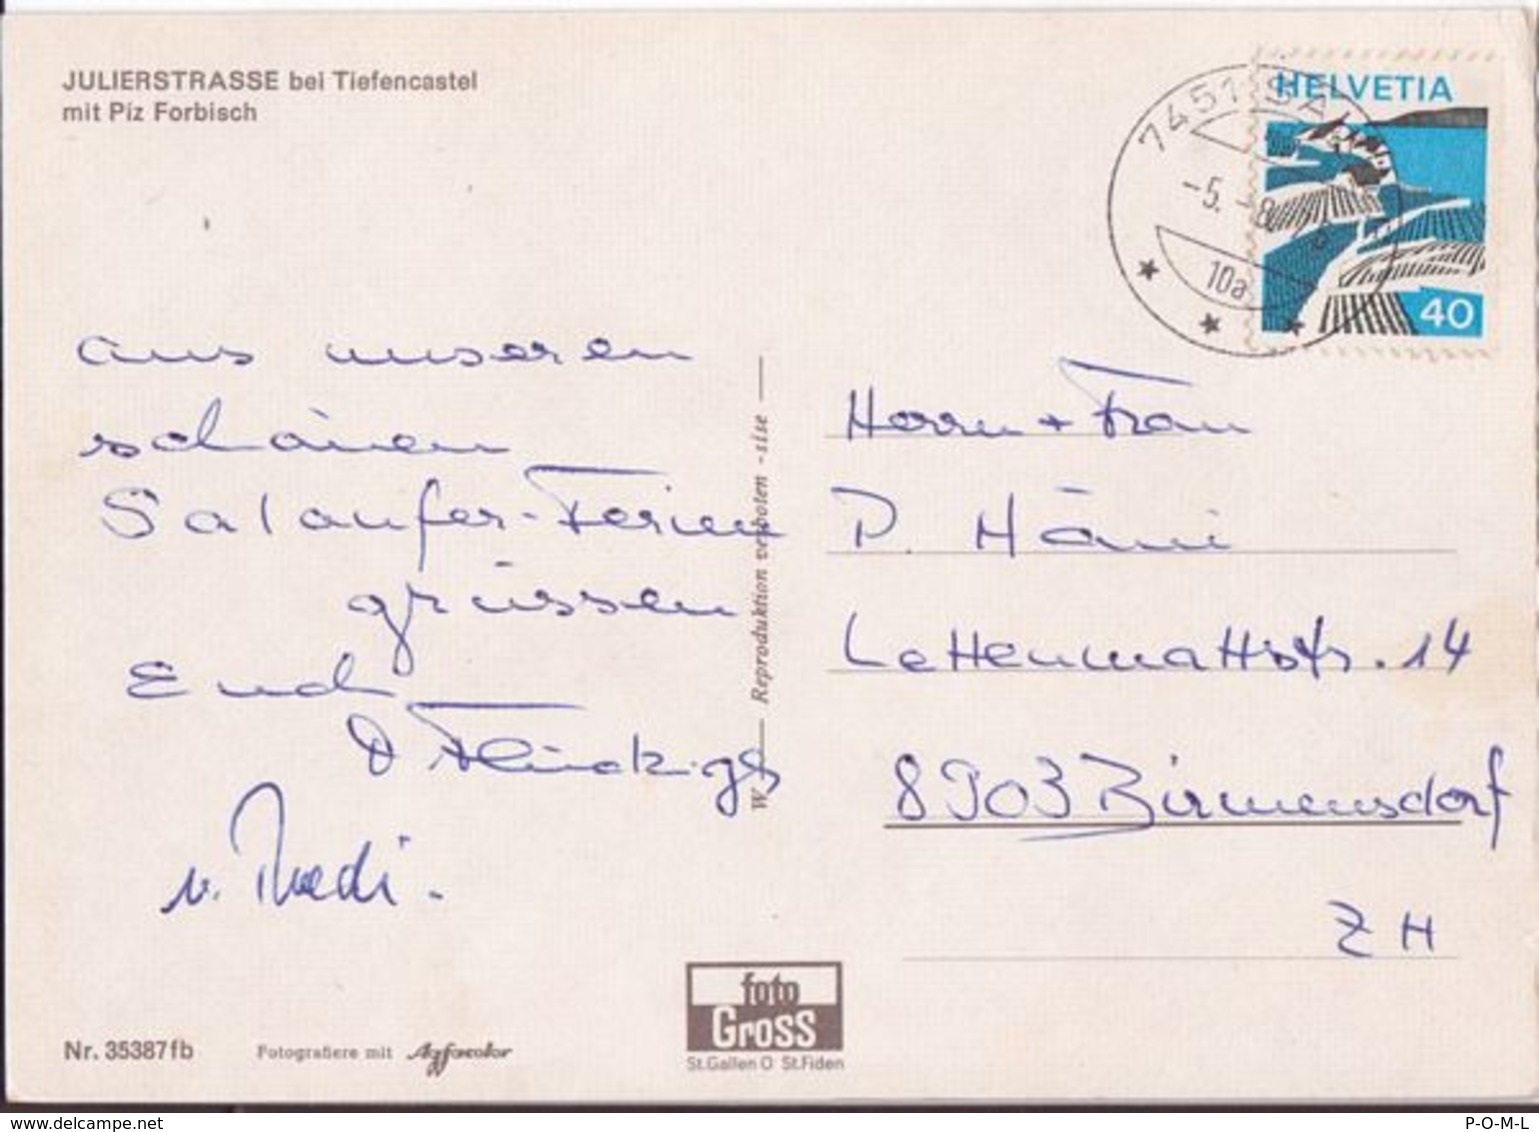 JULIERSTRASSE bei Tiefencastel
mit Piz Forbisch
HELVETIA
40
7451 SA
-5. -8
10a
aus unseren
schönen
Salaufer-Ferien
grüssen
Euch
Flückigs
u. Ruedi.
W Reproduktion verboten -sise
Herrn + Frau
P. Häni
Lettenmattstr. 14
8903 Birmensdorf
ZH
foto
Gross
St.Gallen O St.Fiden
Nr. 35387fb
Fotografiere mit Agfacolor
P-O-M-L